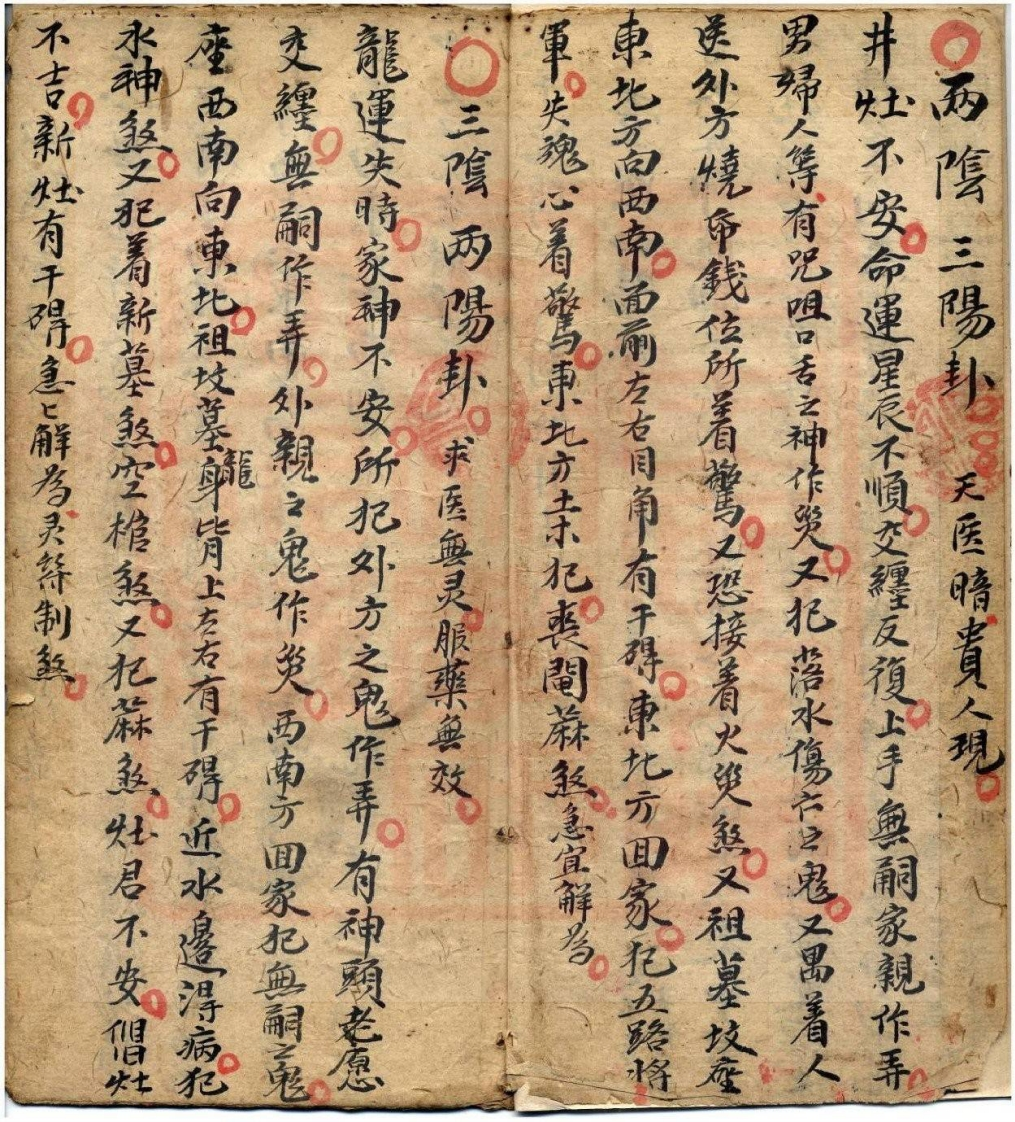 两陰三陽卦 天医暗貴人現
井灶不安命運星辰不順交纏反復上手無嗣家親作弄
男婦人等有咒咀口舌之神作災又犯落水傷亡之鬼又遇着人
送外方燒帋錢位所着驚又恐接着火災煞又祖墓坟座
東北方向西南面前左右目角有干碍東北方回家犯五路将
軍失魂心着驚東北方土木犯喪閪蔴煞急宜解为
三陰两陽卦 求医無灵服藥無效
龍運失時家神不安所犯外方之鬼作弄有神頭老愿
交纏無嗣作弄外親之鬼作災西南方回家犯無嗣之鬼
座西南向東北祖坟墓身龍皆月上左右有干碍近水邉淂病犯
水神煞又犯着新墓煞空棺煞又犯蔴煞灶君不安倡灶
不吉新灶有干碍急匕解為灵符制煞